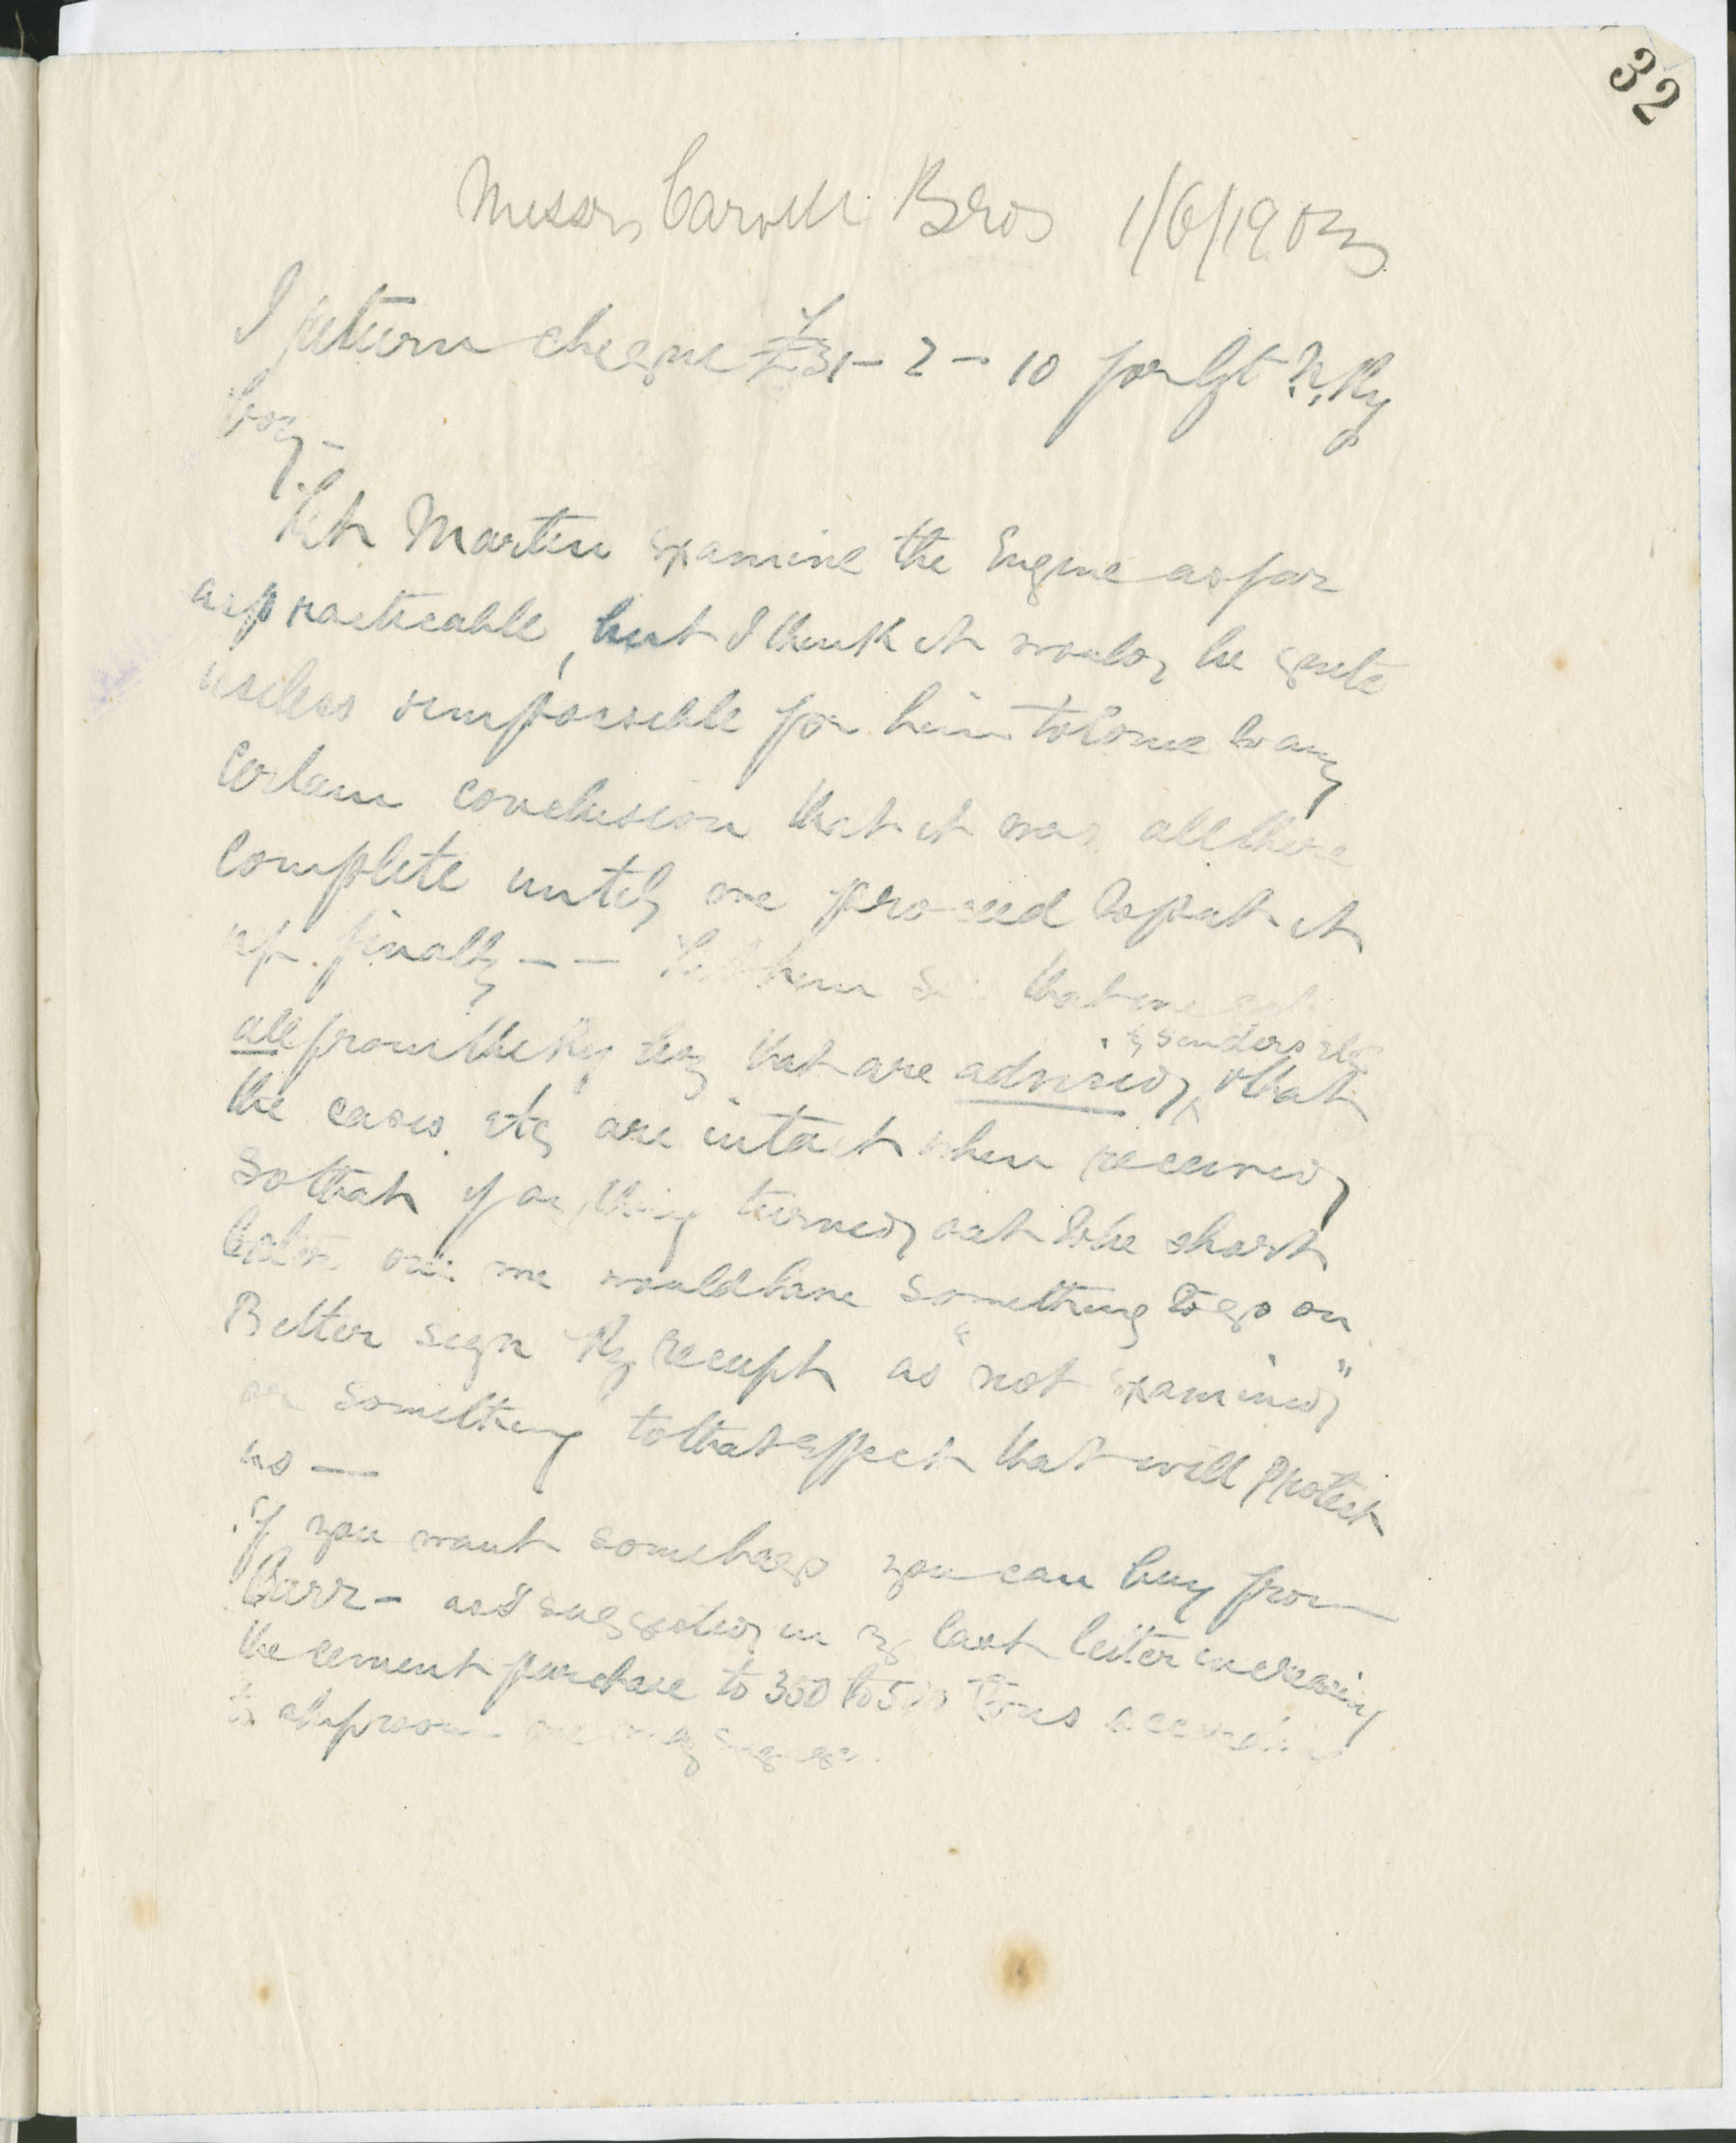 32
Messrs Carvill Bros 1/6/1903
I return cheque £31-2-10 for Gt N. Ry
Coy -
Let Martin examine the Engine as far
as practicable, but I think it would be quite
useless & impossible for him to come to any
certain conclusion that it was all there
complete until we proceed to put it
up finally -- Let him see that we get
by senders etc
all from the Ry Coy that are advised & that
the cases etc are intact when received
so that if anything turned out to be short
later on we would have something to go on
Better sign Ry receipt as "not examined"
or something to that effect that will protect
us —
If you want some bags you can buy from
Carr - as I suggested in my last letter increasing
the cement purchase to 350 to 500 Tons according
to shiproom we may